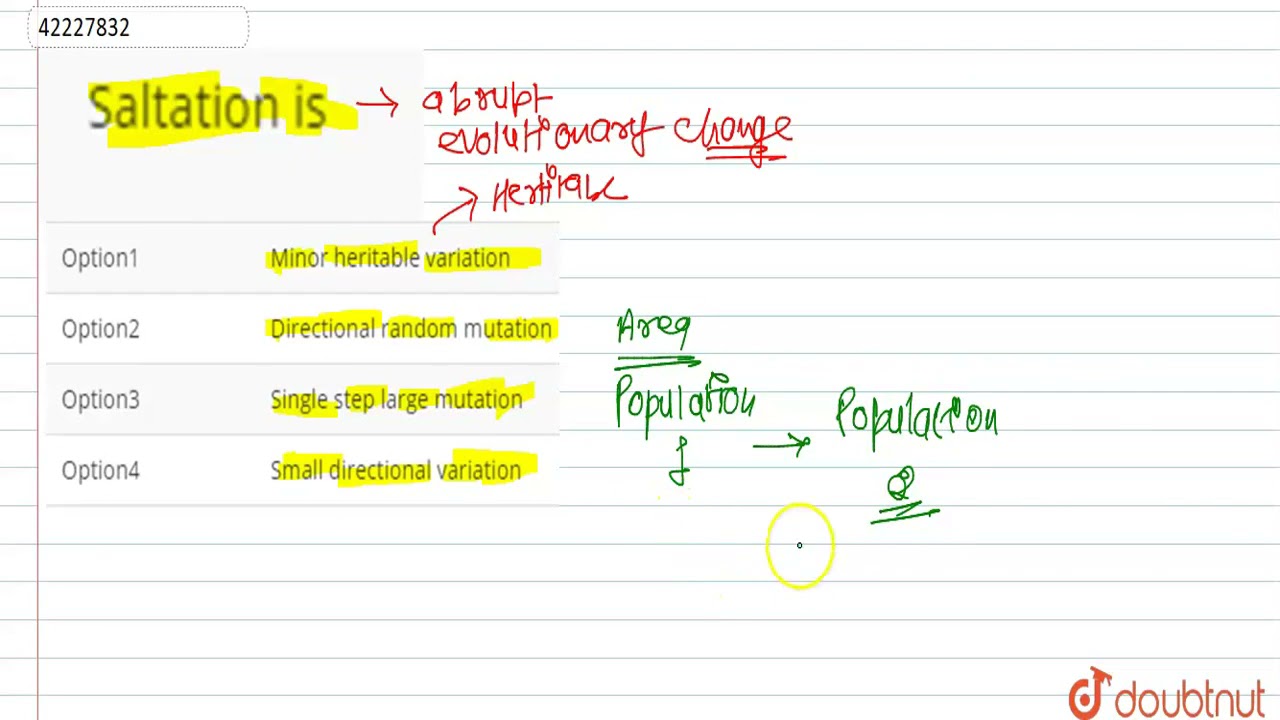 42227832
Saltation is → abrupt
evolutionary change
→ Heritable
Option1 Minor heritable variation
Option2 Directional random mutation
Option3 Single step large mutation
Option4 Small directional variation
Area
Population → Population
doubtnut